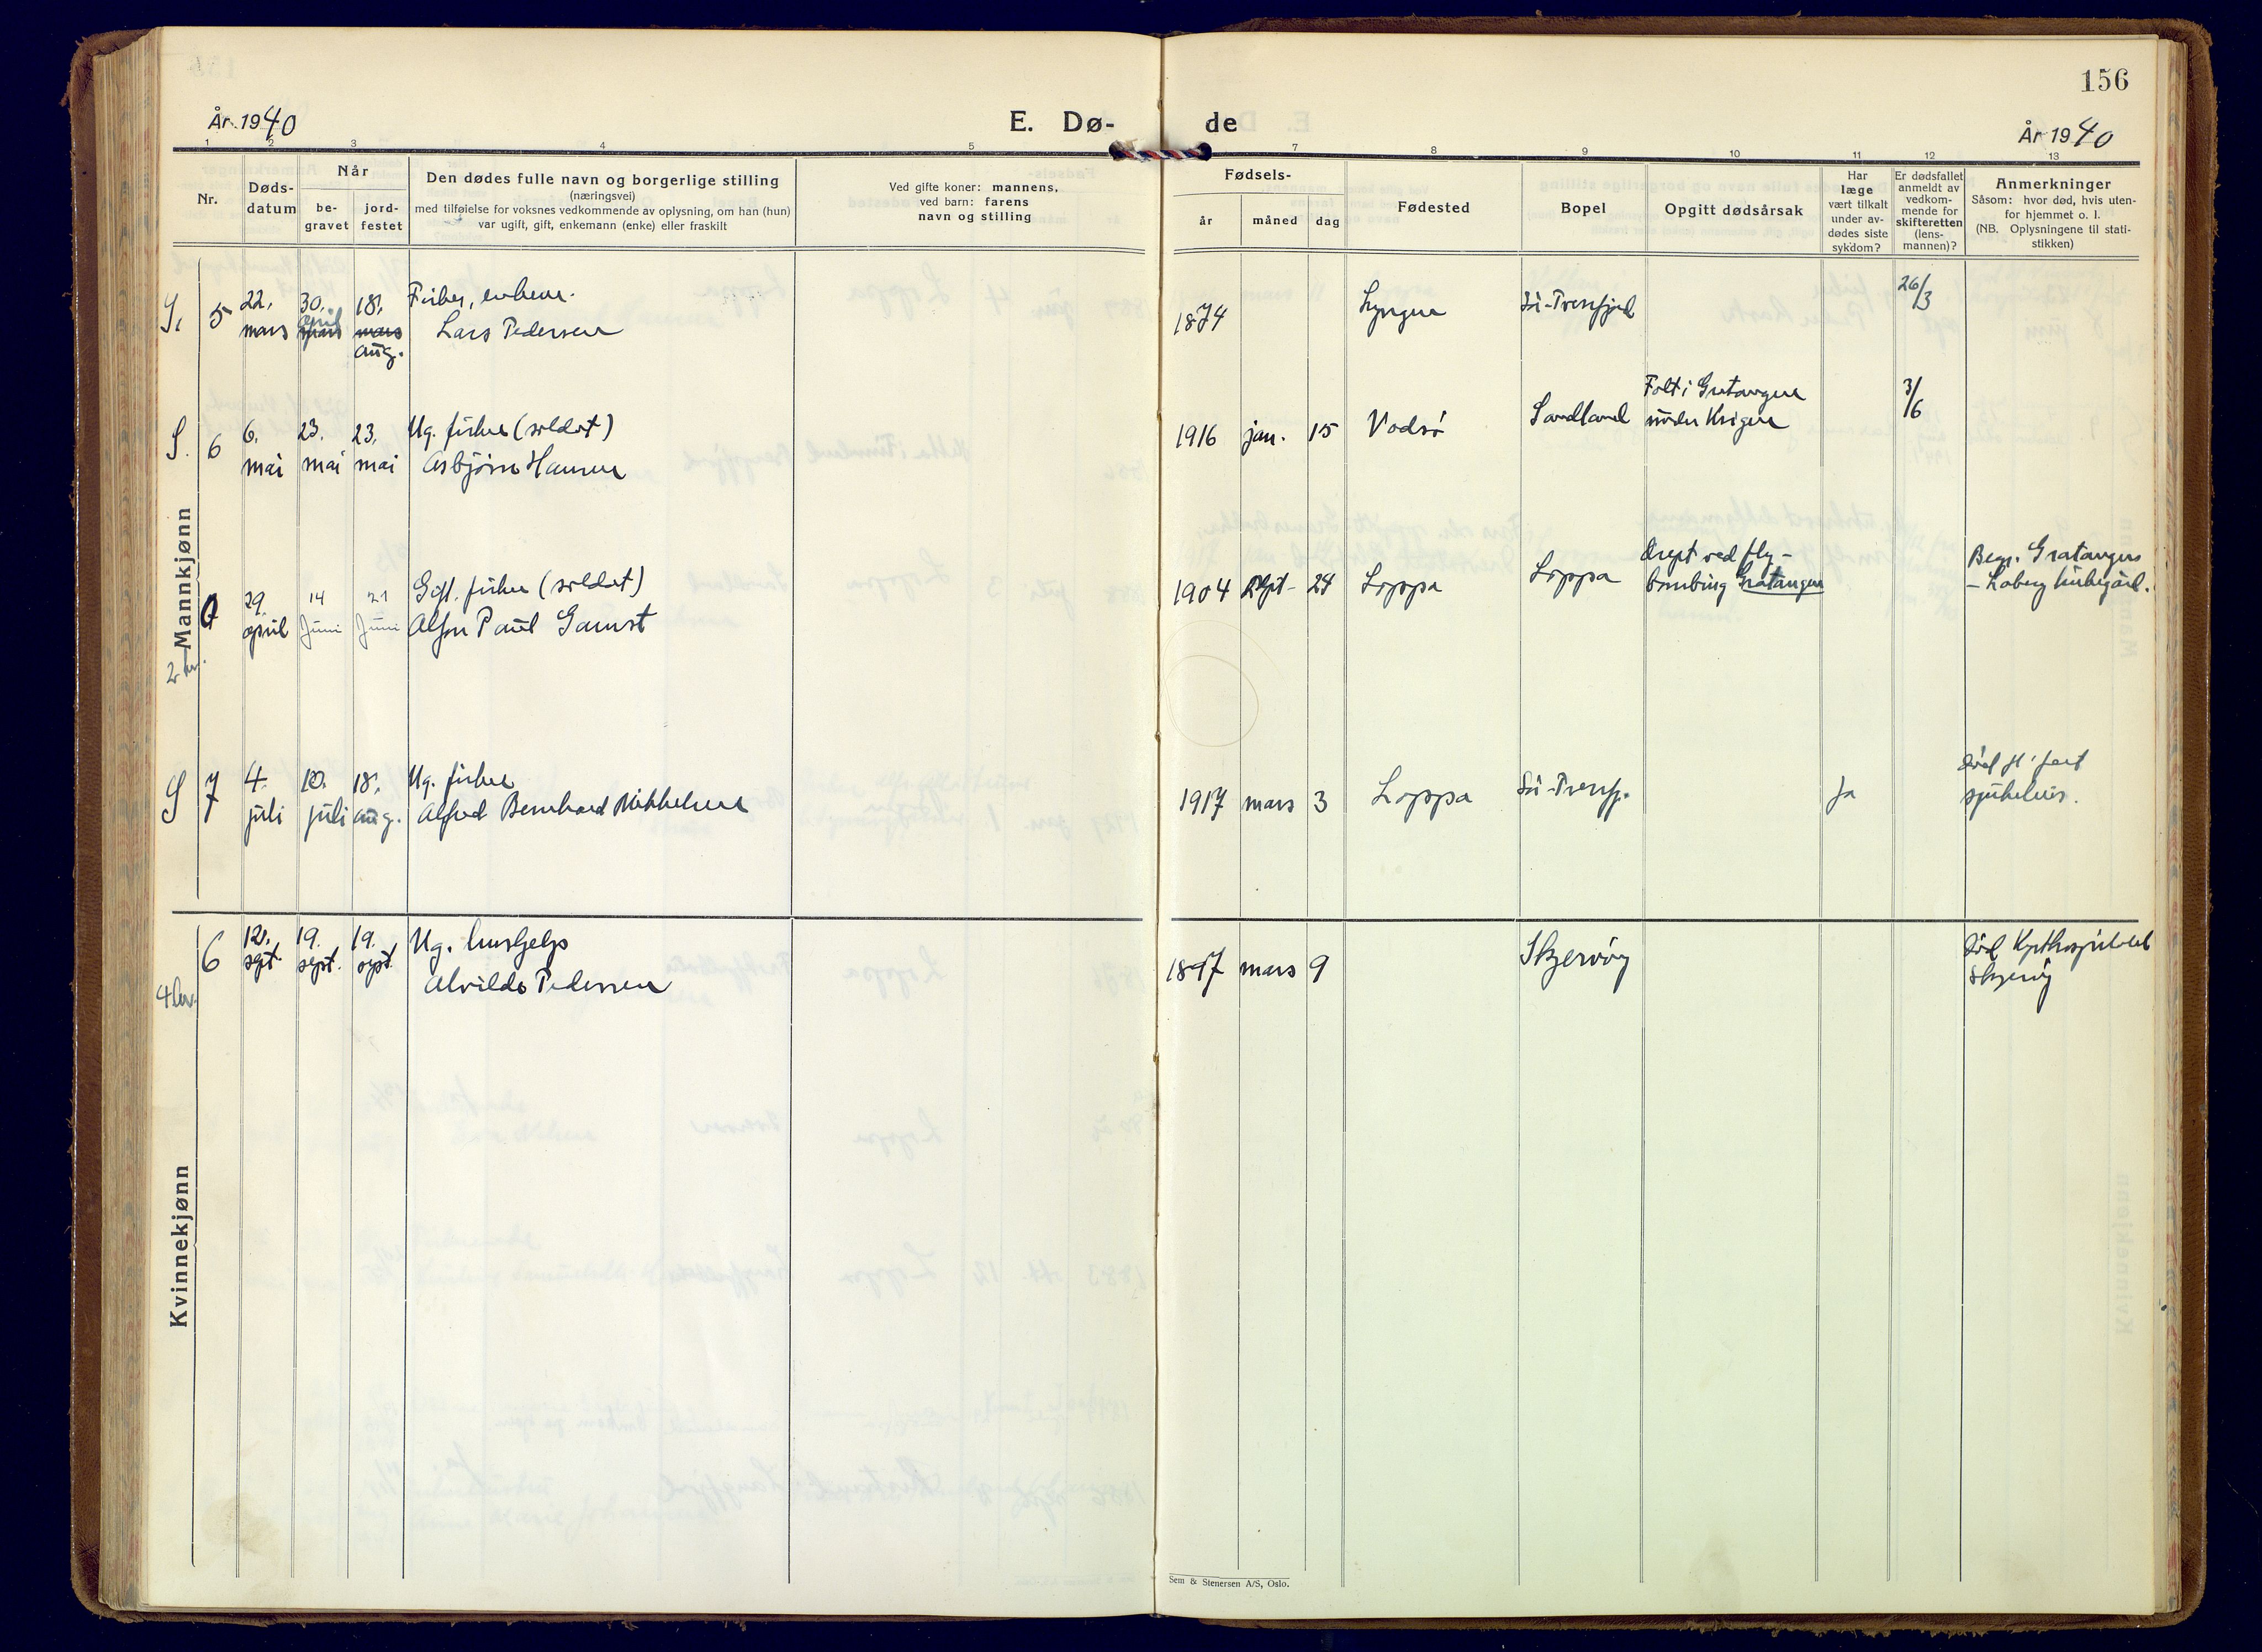 156
År 1940
E. Dø-
de
År 1940
1 2 3 4 5 7 8 9 10 11 12 13
Nr.
Døds-
datum
Når
be-
gravet
jord-
festet
Den dødes fulle navn og borgerlige stilling
(næringsvei)
med tilføielse for voksnes vedkommende av oplysning, om han (hun)
var ugift, gift, enkemann (enke) eller fraskilt
Ved gifte koner: mannens,
ved barn: farens
navn og stilling
Fødsels-
år
måned
dag
Fødested
Bopel
Opgitt dødsårsak
Har
læge
vært tilkalt
under av-
dødes siste
sykdom?
Er dødsfallet
anmeldt av
vedkom-
mende for
skifteretten
(lens-
mannen)?
Anmerkninger
Såsom: hvor død, hvis uten-
for hjemmet o. l.
(NB. Oplysningene til stati-
stikken)
Mannkjønn
S. 5 22. 30. 18. Fisker, enkem.
mars april mars Lars Pedersen
aug.
1874 Lyngen Sør-Tverrfjord 26/3
S. 6 6. 23. 23. Ug. fisker (soldat)
mai mai mai Asbjørn Hansen
1916 jan. 15 Vadsø Sandland
Falt i Gratangen
under Krigen
3/6
29. 14 21 Gift. fisker (soldat)
april Juni Juni Alfon Paul Gamst
1904 sept- 24 Loppa Loppa
drept ved fly-
bombing Gratangen
Begr. Gratangen
kirkegård.
S 7 4. 10. 18. Ug. fisker
juli juli aug. Alfred Bernhard Mikkelsen
1917 mars 3 Loppa Sør-Tverrfj. Ja
død
sjukehus.
Kvinnekjønn
6 12. 19. 19. Ug. hushjelp
sept. sept. sept. Alvilde Pedersen
1897 mars 9 Skjervøy
død
Skjervøy
Sem & Stenersen A/S, Oslo.